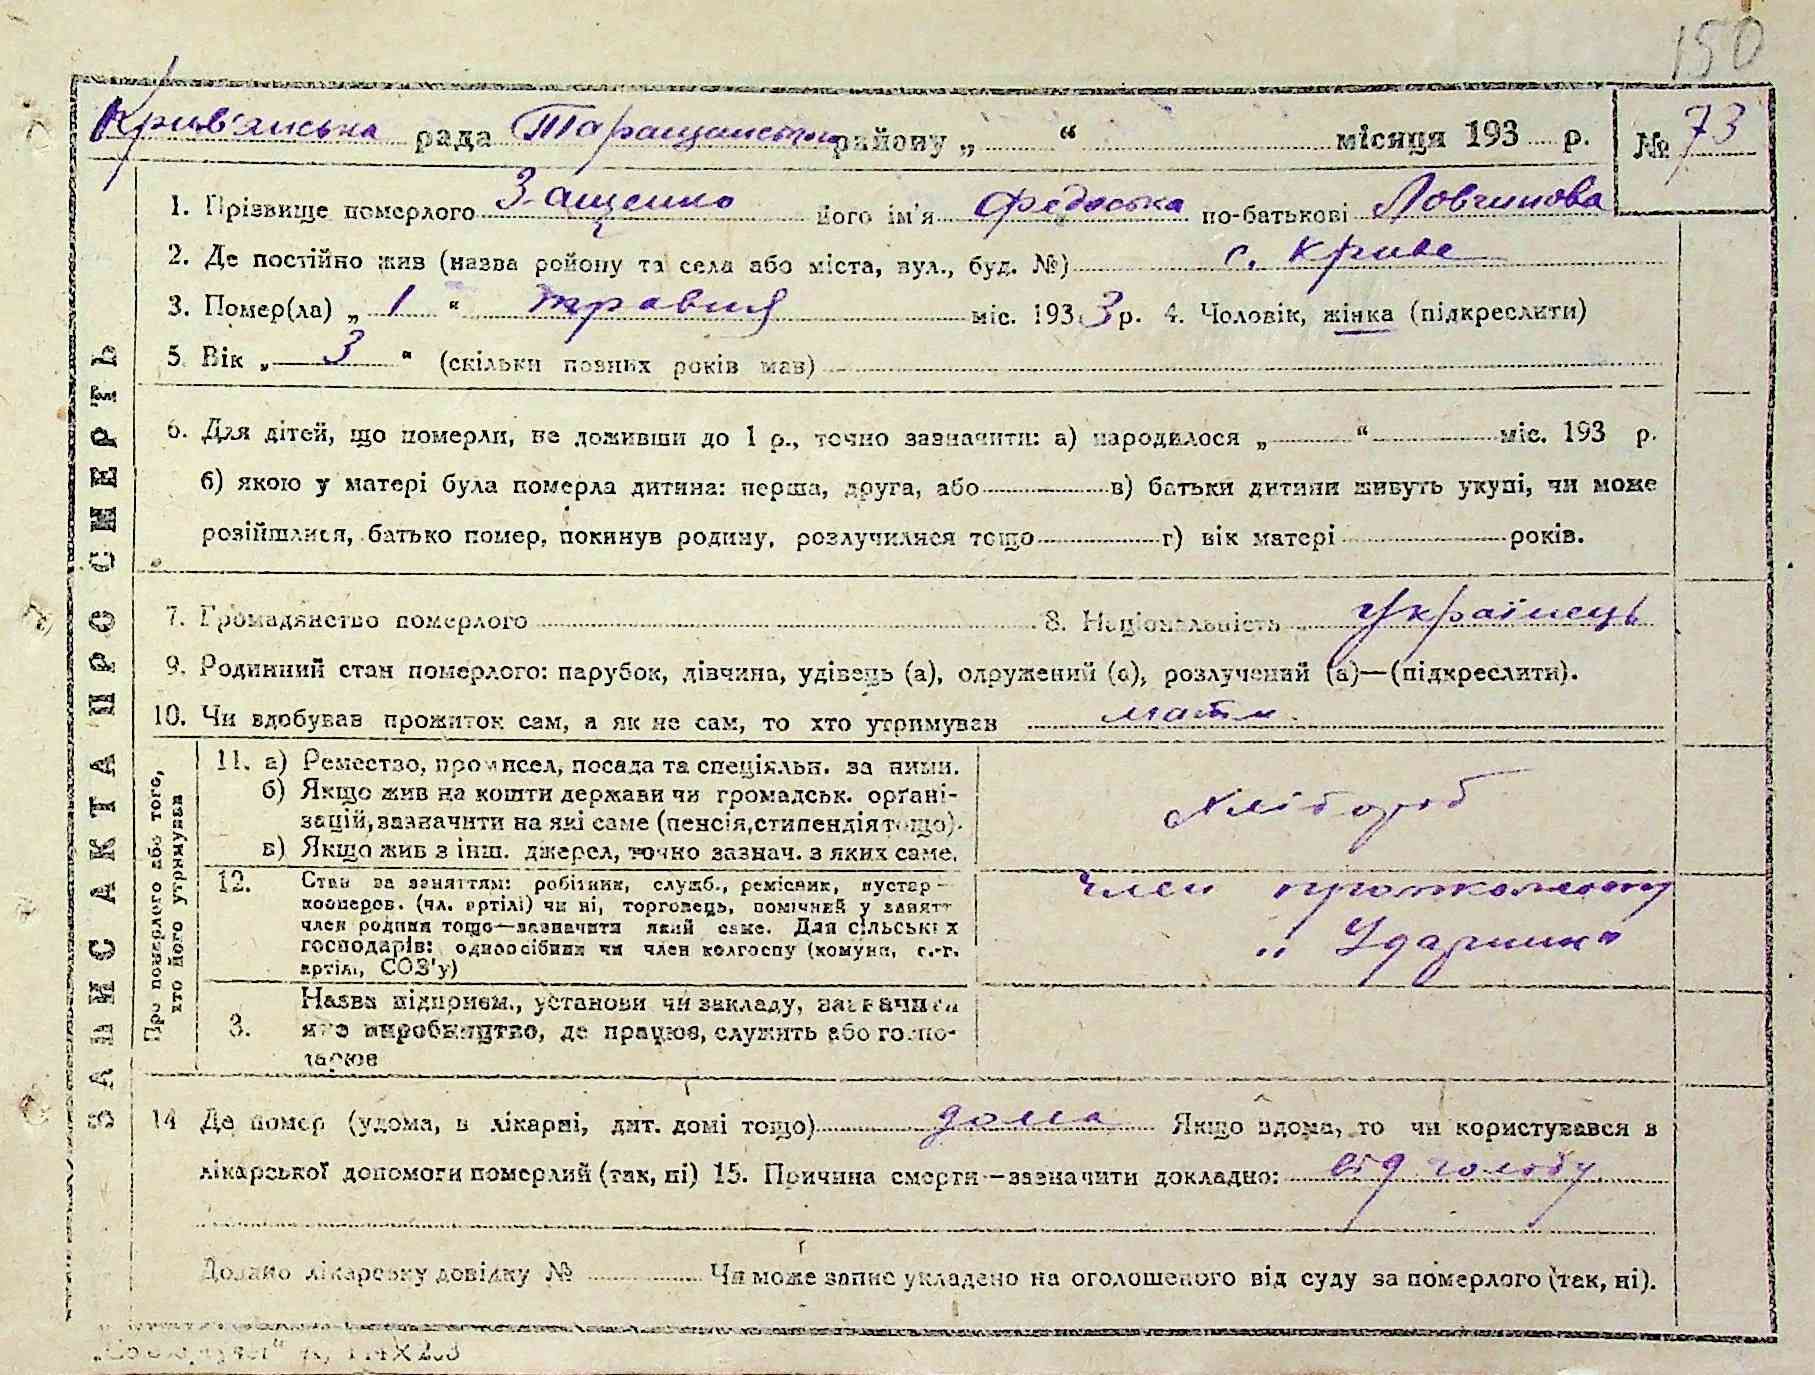 150
Крив'янська рада Таращанського району „ “ місяця 193 р. № 73
ЗАПИС АКТА ПРО СМЕРТЬ
1. Прізвище померлого Защенко його ім'я Федоська по-батькові
2. Де постійно жив (назва району та села або міста, вул., буд. №) с. Криве
3. Помер(ла) „ 1 “ травня міс. 193 3 р. 4. Чоловік, жінка (підкреслити)
5. Вік „ 3 “ (скільки повних років мав)
6. Для дітей, що померли, не доживши до 1 р., точно зазначити: а) народилося „ “ міс. 193 р.
б) якою у матері була померла дитина: перша, друга, або в) батьки дитини живуть укупі, чи може
розійшлися, батько помер, покинув родину, розлучилися тощо г) вік матері років.
7. Громадянство померлого 8. Національність Українець
9. Родинний стан померлого: парубок, дівчина, удівець (а), одружений (а), розлучений (а)—(підкреслити).
10. Чи здобував прожиток сам, а як не сам, то хто утримував мати
Про померлого або того,
хто його утримував
11. а) Ремество, промисел, посада та спеціяльн. за ними.
б) Якщо жив на кошти держави чи громадськ. орґані-
зацій, зазначити на які саме (пенсія, стипендія тощо).
в) Якщо жив з інш. джерел, точно зазнач. з яких саме.
Хлібороб
12. Стан за заняттям: робітник, служб., ремісник, кустар-
кооперов. (чл. артілі) чи ні, торговець, помічний у занятт
член родини тощо—зазначити який саме. Для сільських
господарів: одноосібник чи член колгоспу (комуна, с.-г.
артіль, СОЗ'у)
член
„Ударник“
3. Назва підприєм., установи чи закладу, зазначити
яке виробництво, де працює, служить або госпо-
дарює
14 Де помер (удома, в лікарні, дит. домі тощо) дома Якщо вдома, то чи користувався в
лікарської допомоги померлий (так, ні) 15. Причина смерти—зазначити докладно: від голоду
Додано лікарську довідку № Чи може запис укладено на оголошеного від суду за померлого (так, ні).